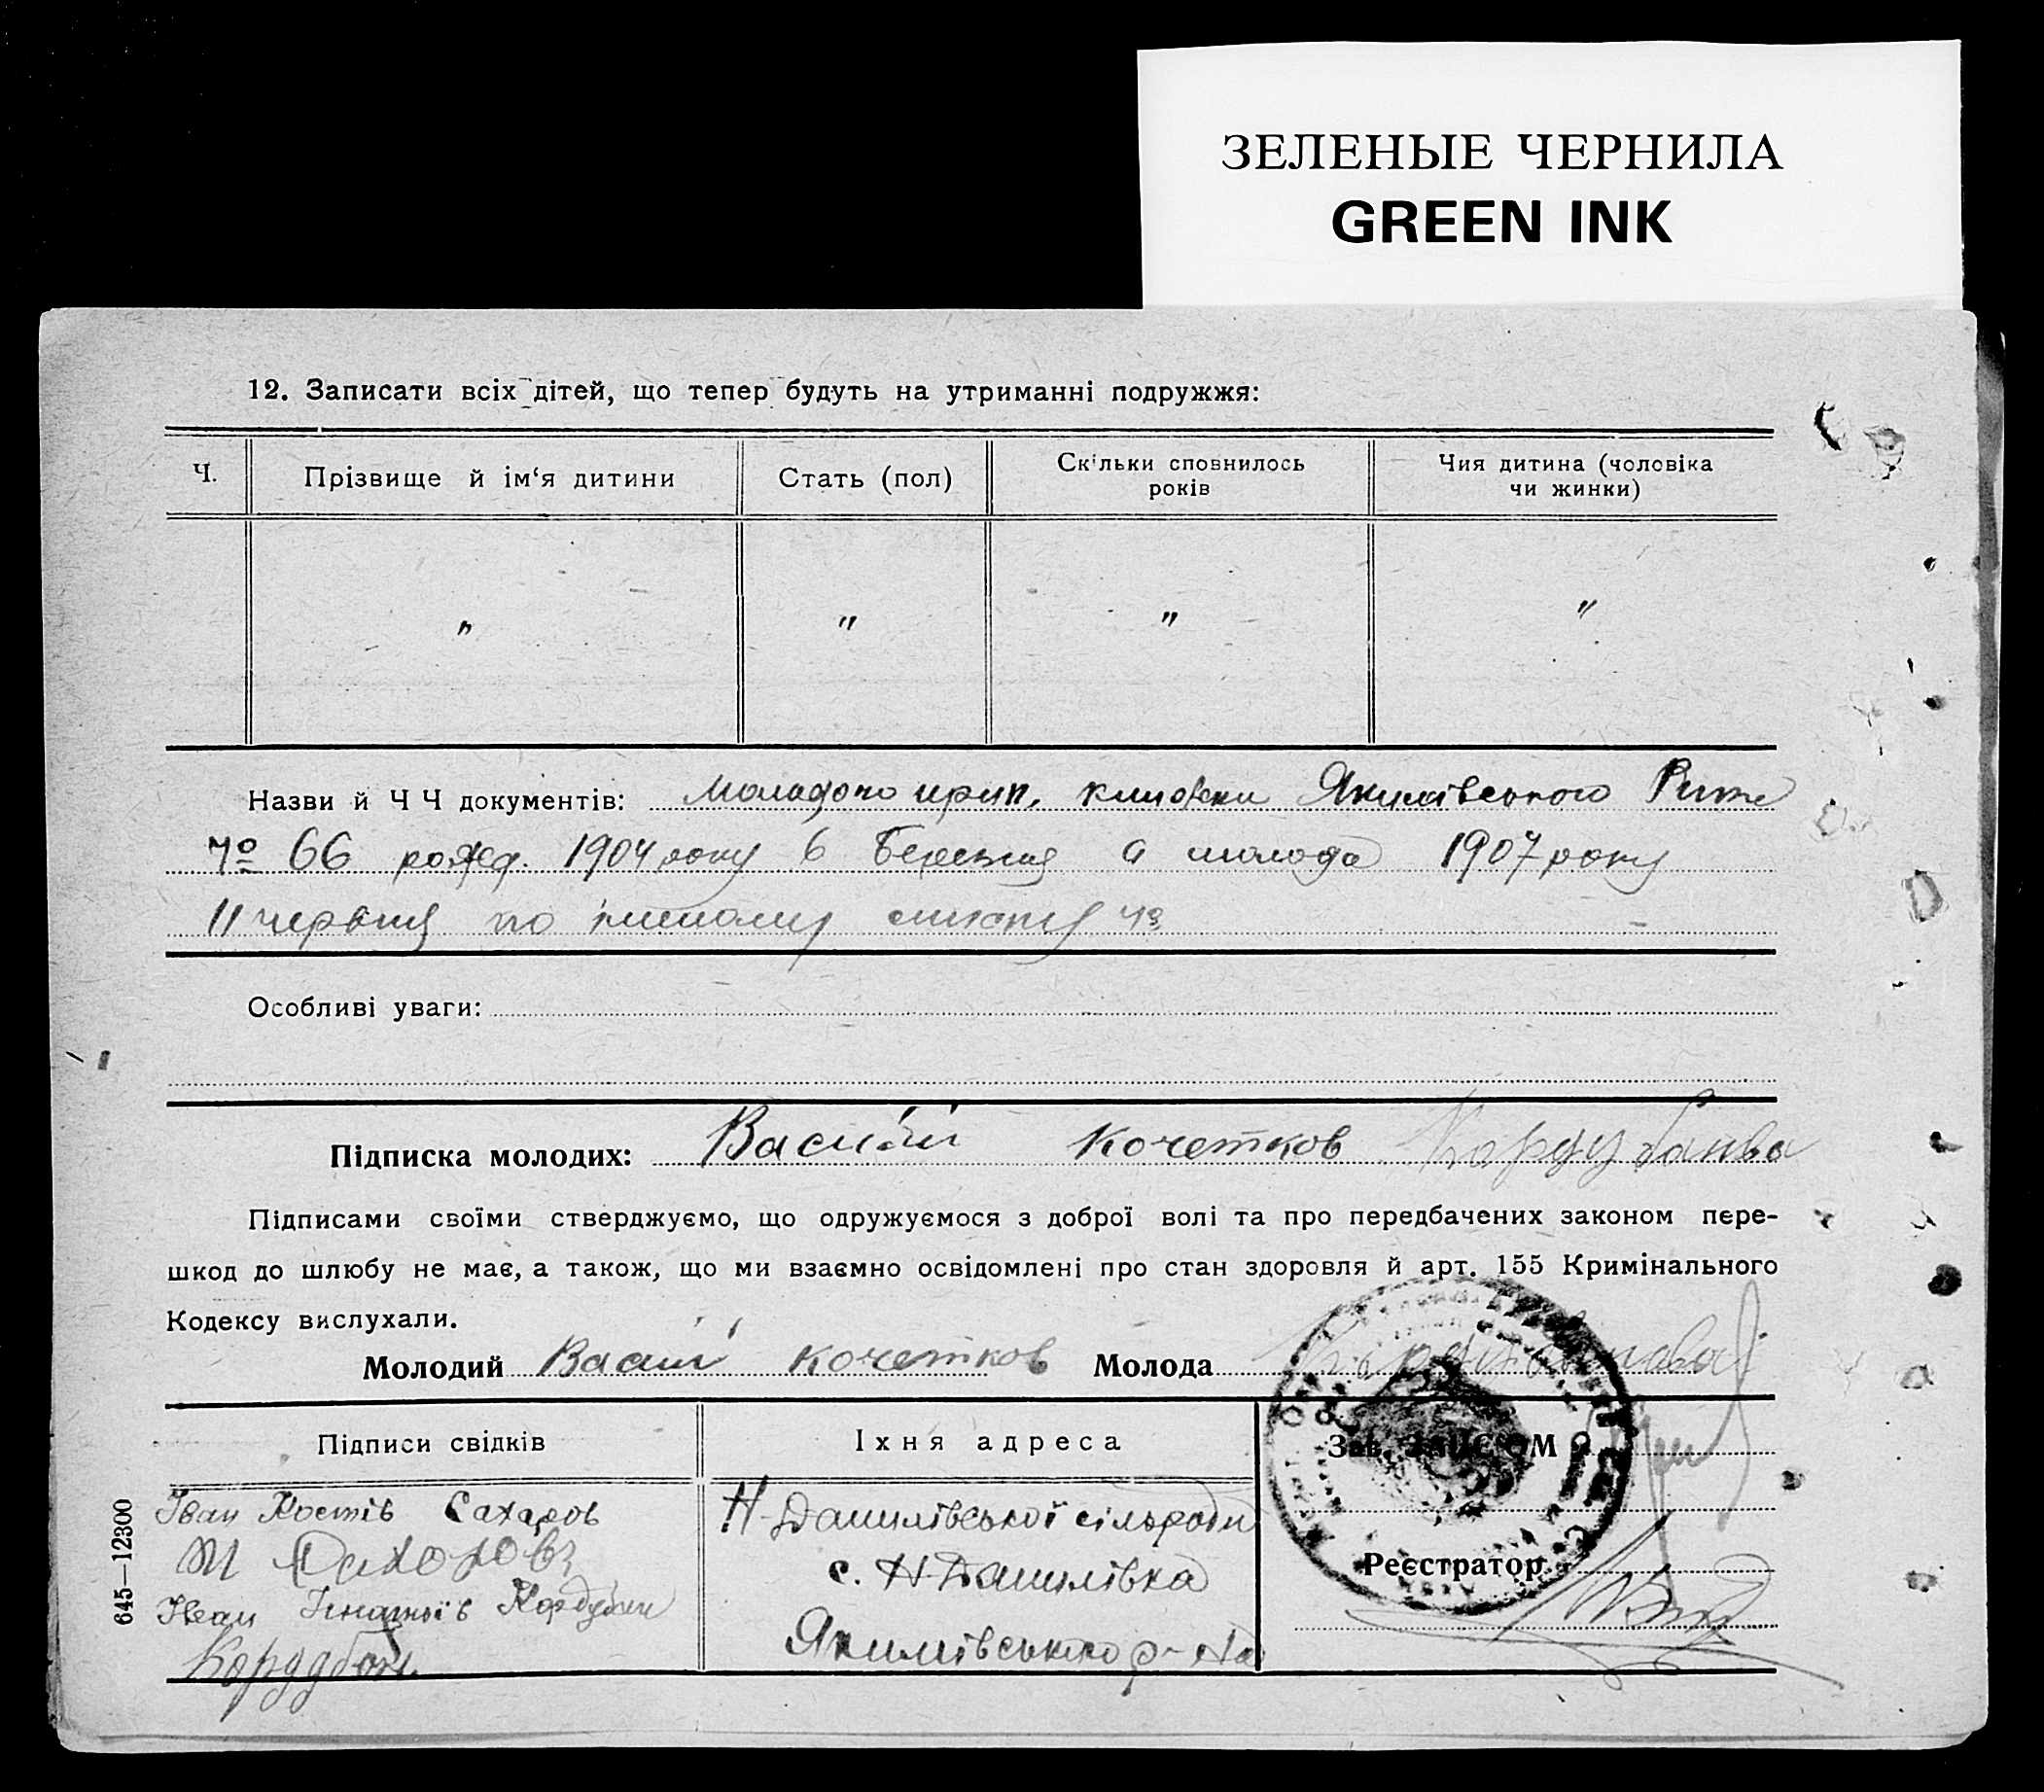 ЗЕЛЕНЫЕ ЧЕРНИЛА
GREEN INK
12. Записати всіх дітей, що тепер будуть на утриманні подружжя:
Ч.
Прізвище й ім‘я дитини
Стать (пол)
Скільки сповнилось
років
Чия дитина (чоловіка
чи жинки)
„ „ „ „
Назви й Ч Ч документів: Молодого прип. Якимівського
66 рожд. 1904 року 6 Березня а молода 1907 року
11 червня по
Особливі уваги:
Підписка молодих: Василій Кочетков
Підписами своїми стверджуємо, що одружуємося з доброї волі та про передбачених законом пере-
шкод до шлюбу не має, а також, що ми взаємно освідомлені про стан здоровля й арт. 155 Кримінального
Кодексу вислухали.
Молодий Васий Кочетков Молода
Підписи свідків
Їхня адреса
Зав. ЗАЦС‘ОМ
Іван Костів Сахаров
Іван Кордубан
Кордубан
Н-Данилівської сільради
с. Н-Данилівка
Якимівського р-на
Реєстратор
645—12300